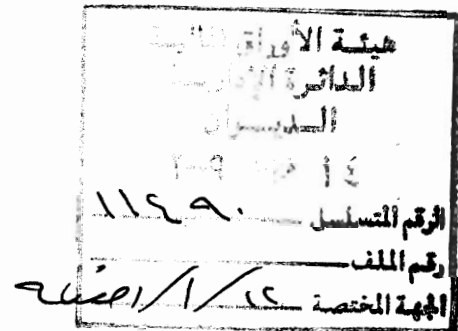 هيئة الأوراق المالية
الدائرة الإدارية
الديوان
١٤
الرقم المتسلسل ١١٤٩٠
رقم الملف
الجهة المختصة